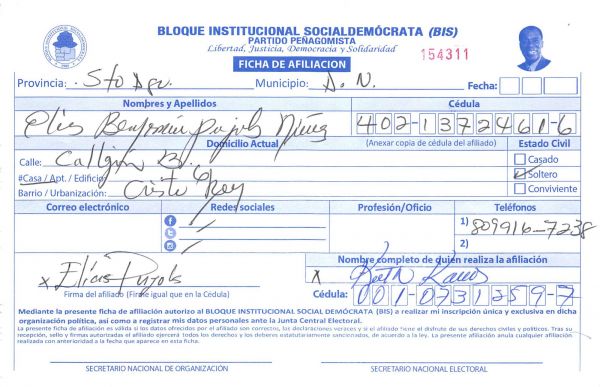 BLOQUE INSTITUCIONAL SOCIALDEMÓCRATA (BIS)
PARTIDO PEÑAGOMISTA
Libertad, Justicia, Democracia y Solidaridad
FICHA DE AFILIACION
154311
Provincia: Sto Dgo. Municipio: D.N. Fecha:
Nombres y Apellidos Cédula
Elias Benjamin Pujols Núñez 402-1372461-6
Domicilio Actual (Anexar copia de cédula del afiliado) Estado Civil
Calle: Casado
#Casa / Apt. / Edificio Soltero
Barrio / Urbanización: Cristo Rey Conviviente
Correo electrónico Redes sociales Profesión/Oficio Teléfonos
1) 809916-7238
2)
Nombre completo de quien realiza la afiliación
x Elías Pujols X
Firma del afiliado (Firme igual que en la Cédula) Cédula: 001-0731259-7
Mediante la presente ficha de afiliación autorizo al BLOQUE INSTITUCIONAL SOCIAL DEMÓCRATA (BIS) a realizar mi inscripción única y exclusiva en dicha
organización política, así como a registrar mis datos personales ante la Junta Central Electoral.
La presente ficha de afiliación es válida si los datos ofrecidos por el afiliado son correctos, las declaraciones veraces y si el afiliado tiene el disfrute de sus derechos civiles y políticos. Tras su
recepción, sello y firmas autorizadas el afiliado ejercerá todos los derechos y los deberes estatutariamente sancionados, de acuerdo a la ley. La presente afiliación anula cualquier afiliación
realizada con anterioridad a la fecha que aparece en esta ficha.
SECRETARIO NACIONAL DE ORGANIZACIÓN SECRETARIO NACIONAL ELECTORAL